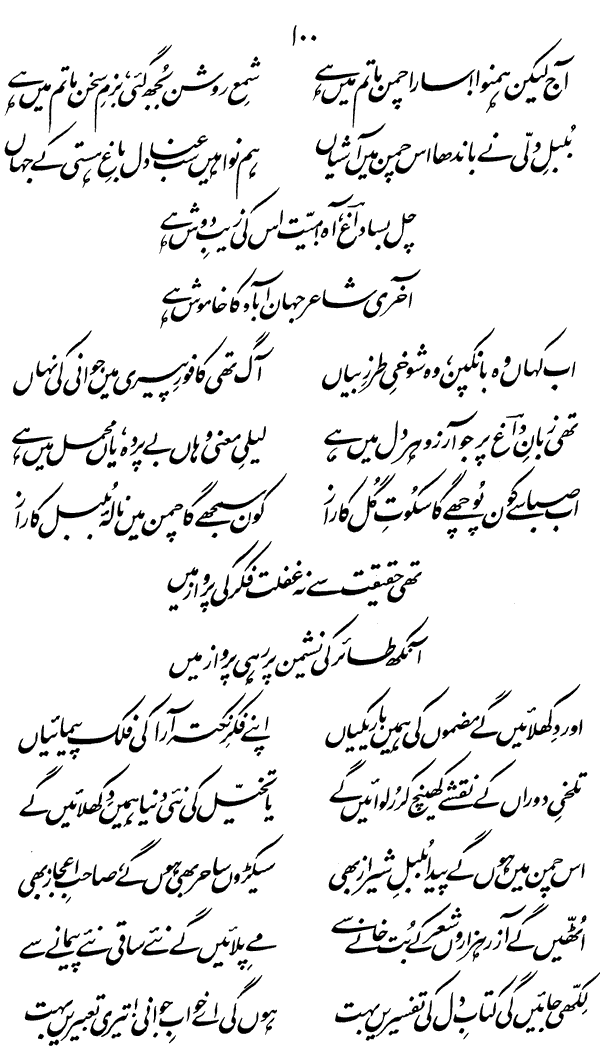 ۱۰۰
آج لیکن ہمنوا! سارا چمن ماتم میں ہے شمعِ روشن بُجھ گئی، بزمِ سخن ماتم میں ہے
بُلبلِ دلّی نے باندھا اس چمن میں آشیاں ہم نوا ہیں سب عنادل باغِ ہستی کے جہاں
چل بسا داغؔ، آہ! میّت اس کی زیبِ دوش ہے
آخری شاعر جہان آباد کا خاموش ہے
اب کہاں وہ بانکپن، وہ شوخیِ طرزِ بیاں آگ تھی کافورِ پیری میں جوانی کی نہاں
تھی زبانِ داغؔ پر جو آرزو ہر دل میں ہے لیلیِ معنی وہاں بے پردہ، یاں محمل میں ہے
اب صبا سے کون پُوچھے گا سکُوتِ گُل کا راز کون سمجھے گا چمن میں نالۂ بُلبل کا راز
تھی حقیقت سے نہ غفلت فکر کی پرواز میں
آنکھ طائر کی نشیمن پر رہی پرواز میں
اور دِکھلائیں گے مضموں کی ہمیں باریکیاں اپنے فکرِ نکتہ آرا کی فلک پیمائیاں
تلخیِ دوراں کے نقشے کھینچ کر رُلوائیں گے یا تخیّل کی نئی دنیا ہمیں دِکھلائیں گے
اس چمن میں ہوں گے پیدا بُلبلِ شیراز بھی سیکڑوں ساحر بھی ہوں گے، صاحبِ اعجاز بھی
اُٹھّیں گے آزر ہزاروں شعر کے بُت خانے سے مے پلائیں گے نئے ساقی نئے پیمانے سے
لِکھّی جائیں گی کتابِ دل کی تفسیریں بہت ہوں گی اے خوابِ جوانی! تیری تعبیریں بہت